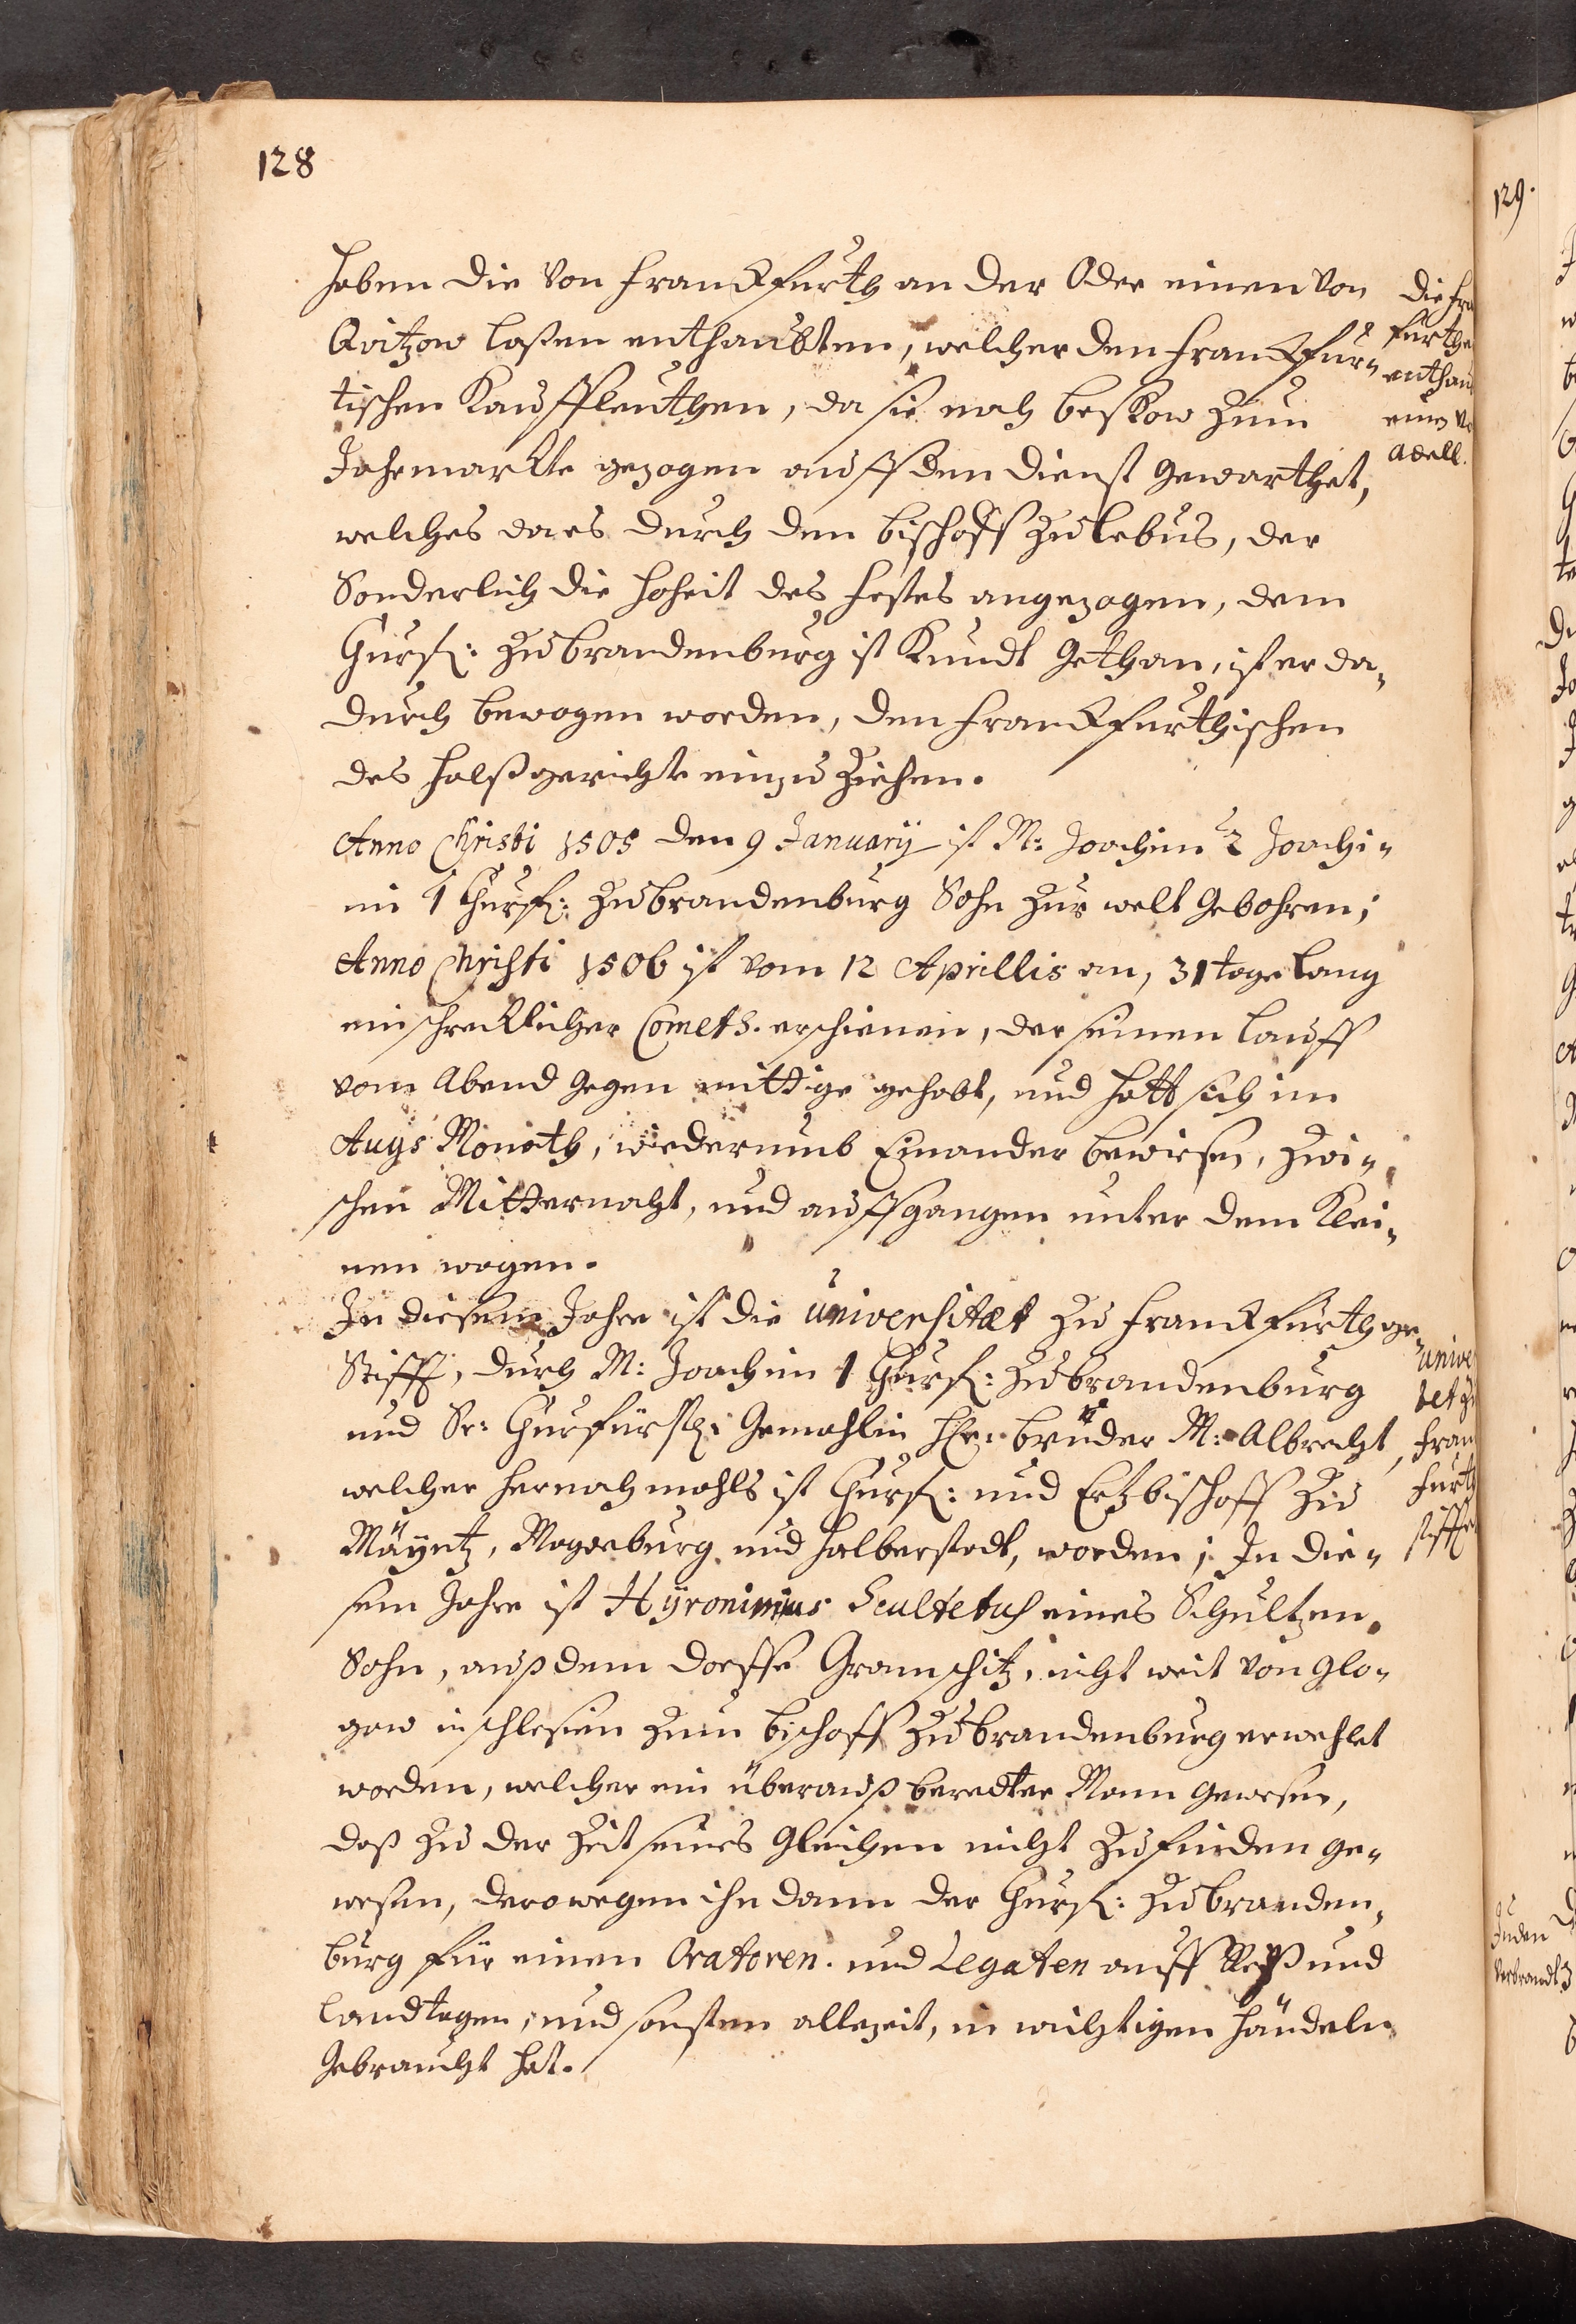 128
haben die von Franckfurth an der Oder einen von
Qvitzow laßen enthaubten, welcher den Franckfur„
tischen Kauffleuthen, da sie nach Beskow zum
Jahrmarkte gezogen auff den Dienst gewarthet,
welches da es durch den Bischoff zu Lebus, der
Sonderlich die Hoheit des Festes angezogen, dem
Churf: zu Brandenburg ist Kundt gethan, ist er da„
durch bewogen worden, den Franckfurthischen
des Halßgerichte einzu ziehen.
Anno Christi 1505 den 9 January ist M: Joachim 2 Joachi„
mi 1 Churf: zu Brandenburg Sohn zur welt gebohren;
Anno Christi 1506 ist vom 12 Aprillis an, 31 tage lang
ein schrecklicher Cometh. erschienen, der seinen Lauff
vom Abend gegen mittige gehabt, und hatt sich im
Augs Monath, wiederumb Einander bewiesen, zwi„
schen Mitternacht, und auffgangen unter dem Klei„
nen wagen.
In diesem Jahre ist die Universitæt zu Franckfurth ge„
Stifft, durch M: Joachim 1 Churf: zu Brandenburg
und Sr: Churfürstl: Gemahlin Hr: Bruder M: Albrecht,
welcher hernach mahls ist Churf: und Ertzbischoff zu
Mäyntz, Magdeburg und Halberstadt, worden; In die„
sem Jahre ist Hÿronimus Scultetus eines Schultzen
Sohn, auß dem Dorffe Gramschitz, nicht weit von Glo„
gow in schlesien zum Bischoff zu Brandenburg erwehlet
worden, welcher ein überauß beredter Mann gewesen,
daß zu der Zeit seines gleichen nicht zu finden ge„
wesen, derowegen ihn dann der Churf: zu Branden„
burg für einen Oratoren. und Legaten auff Reyß und
Landtagen, und sonsten allezeit, in wichtigen Händeln
Gebraucht hat.
die Fra
furthe
enthau
einen vo
Adell.
Unive
tet zu
Fran
furth
stiffte
129.
Juden
Verbrandt